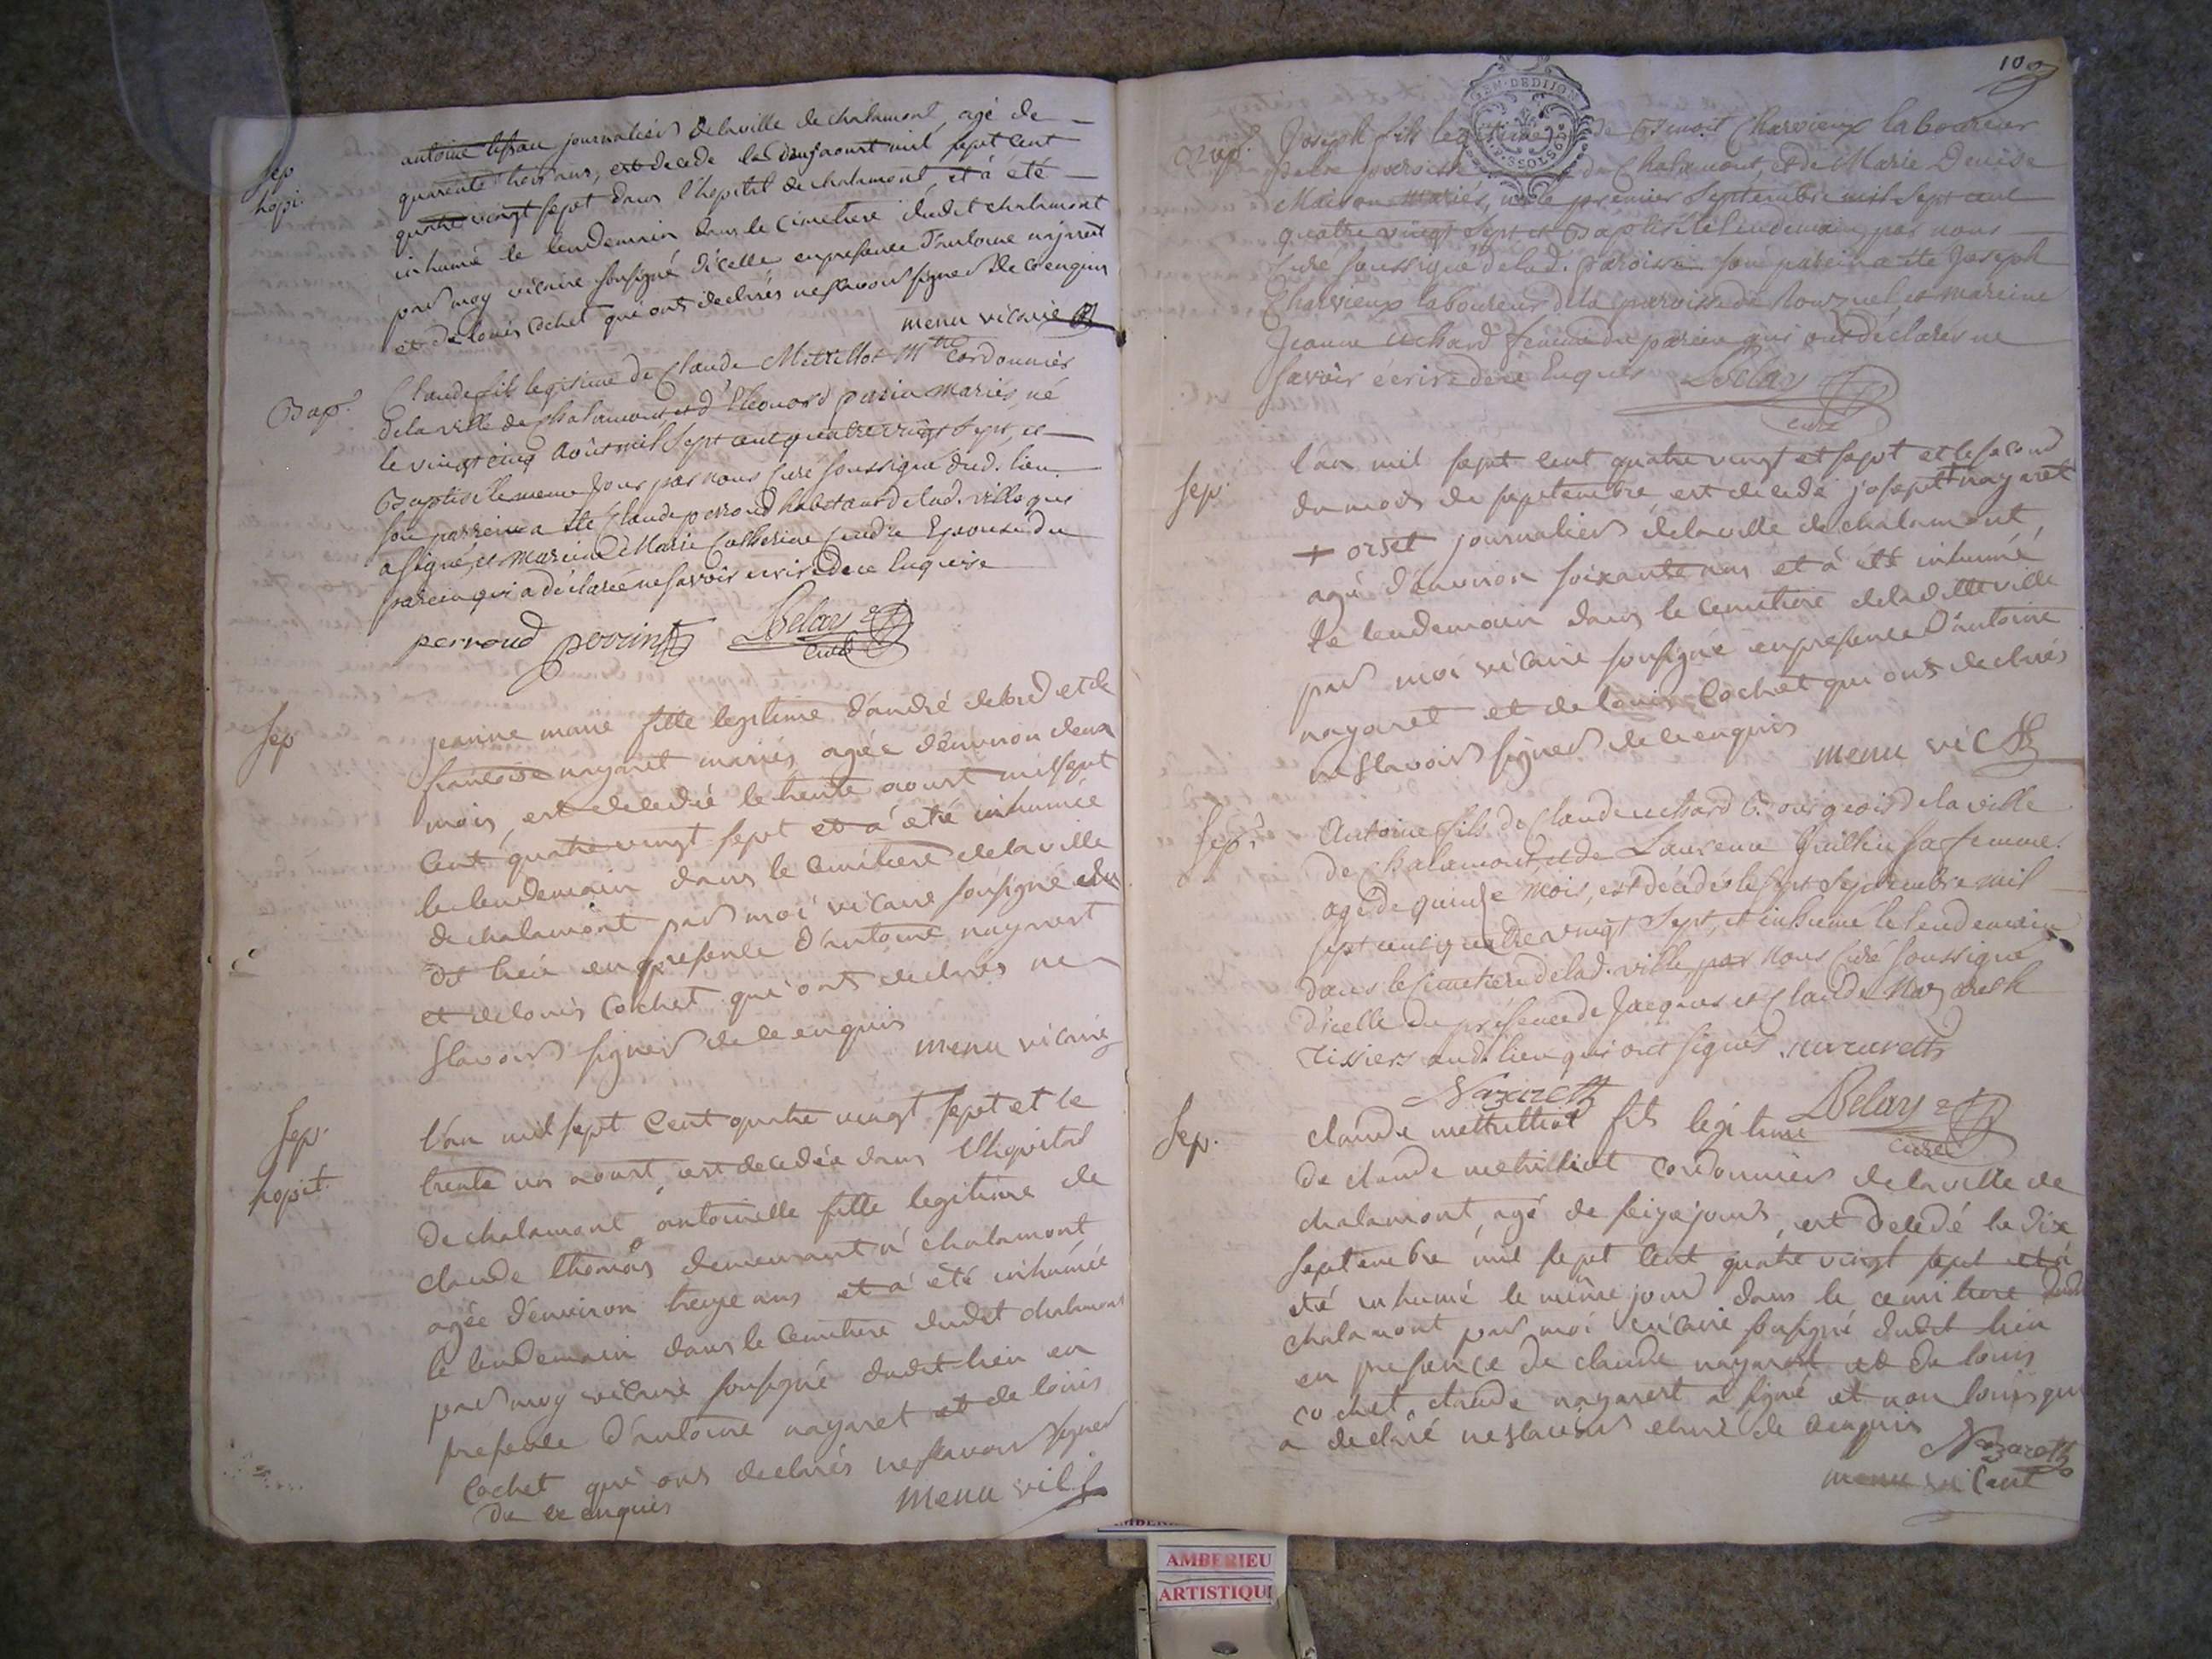 Sep
hopi.
antoine journalier de la ville de chalamont, agé de
quarente trois ans, est decede le aoust mil sept cent
quatre vingt sept dans l'hopital de chalamont et à été
inhumé le lendemain dans le cimetiere dudit chalamont
par moy vicaire sousigné d'icelle en presence d'antoine nazaret
et de louis cochet qui ont declarés ne scavoir signer de ce enquis
menu vicaire
Bap.
Claude fils legitime de Claude Metrillot Mtre Cordonnier
de la ville de Chalamont et d'Eléonord perin mariés, né
le vingt cinq Août mil sept cent quatre vingt sept, et
Baptisé le meme jour par nous Curé soussigné dud. lieu
son parrein a été Claude perroud habitant de lad. ville qui
a signé, et mareine Marie Catherine Epouse du
parein qui a déclarée ne savoir ecrire de ce Enquise
perroud perrin Delay
curé
Sep
jeanne marie fille legitime d'andré debord et de
francoise nazaret mariés, agée d'environ deux
mois, est decedée le trente aoust mil sept
cent quatre vingt sept et a été inhumée
le lendemain dans le cimitiere de la ville
de chalamont par moi vicaire sousigné du
dt lieu en presence d'antoine nazaret
et de louis cochet qui ont declarés ne
scavoir signer de ce enquis
menu vicaire
Sep.
hopit.
L'an mil sept Cent quatre vingt sept et le
trente un aoust, est decedée dans l'hopital
de chalamont antoinette fille legitime de
claude thomas demeurant à chalamont
agée d'environ treize ans et a été inhumée
le lendemain dans le Cemetiere dudit chalamont
par moy vicaire sousigné dudit lieu en
presence d'antoine nazaret et de louis
Cochet qui ont declarés ne scavoir signer
de ce enquis
menu vic
109
GEN. DE DIJON
Bap.
Joseph fils legitime de Benoit Charvieux laboureur
de la paroisse de Chalamont, et de Marie Denise
Maison mariés, né le premier Septembre mil Sept cent
quatre vingt Sept et Baptisé le lendemain par nous
Curé soussigné de lad. paroisse son parein a été Joseph
Charvieux laboureur de la paroisse de et mareine
Jeanne uchard femme du parein qui ont déclarés ne
savoir écrire de ce Enquis Delay
curé
Sep.
l'an mil sept cent quatre vingt et sept et le second
du mois de septembre, est decedé joseph nazaret
+ orset journalier de la ville de chalamont,
agé d'environ soixante ans et à été inhumé
le lendemain dans le cemetiere de la ditte ville
par moi vicaire sousigné en presence d'antoine
nazaret et de louis Cochet qui ont declarés
ne scavoir signer de ce enquis
menu vic
Sep.
Antoine fils de Claude uchard Bourgeois de la ville
de Chalamont et de Laurence Guillin sa femme.
agé de quinze mois, est décédé le sept Septembre mil
sept cent quatre vingt Sept, et inhumé le lendemain
dans le Cimetiere de lad. ville par nous Curé soussigné
d'icelle en présence de Jacques et Claude Nazareth
Tissiers aud. lieu qui ont signés. nazareth
Nazareth Delay
curé
Sep.
claude mettrilliot fils legitime
de claude metrilliot cordonnier de la ville de
chalamont, agé de seize jours, est decedé le dix
septembre mil sept cent quatre vingt sept et a
eté inhumé le même jour dans le cemitiere dudit
chalamont par moi vicaire sousigné dudit lieu
en presence de claude nazaret et de louis
cochet, claude nazaret a signé et non louis qui
a declaré ne scavoir ecrire de ce enquis
Nazareth
menu vicaire
AMBERIEU
ARTISTIQU